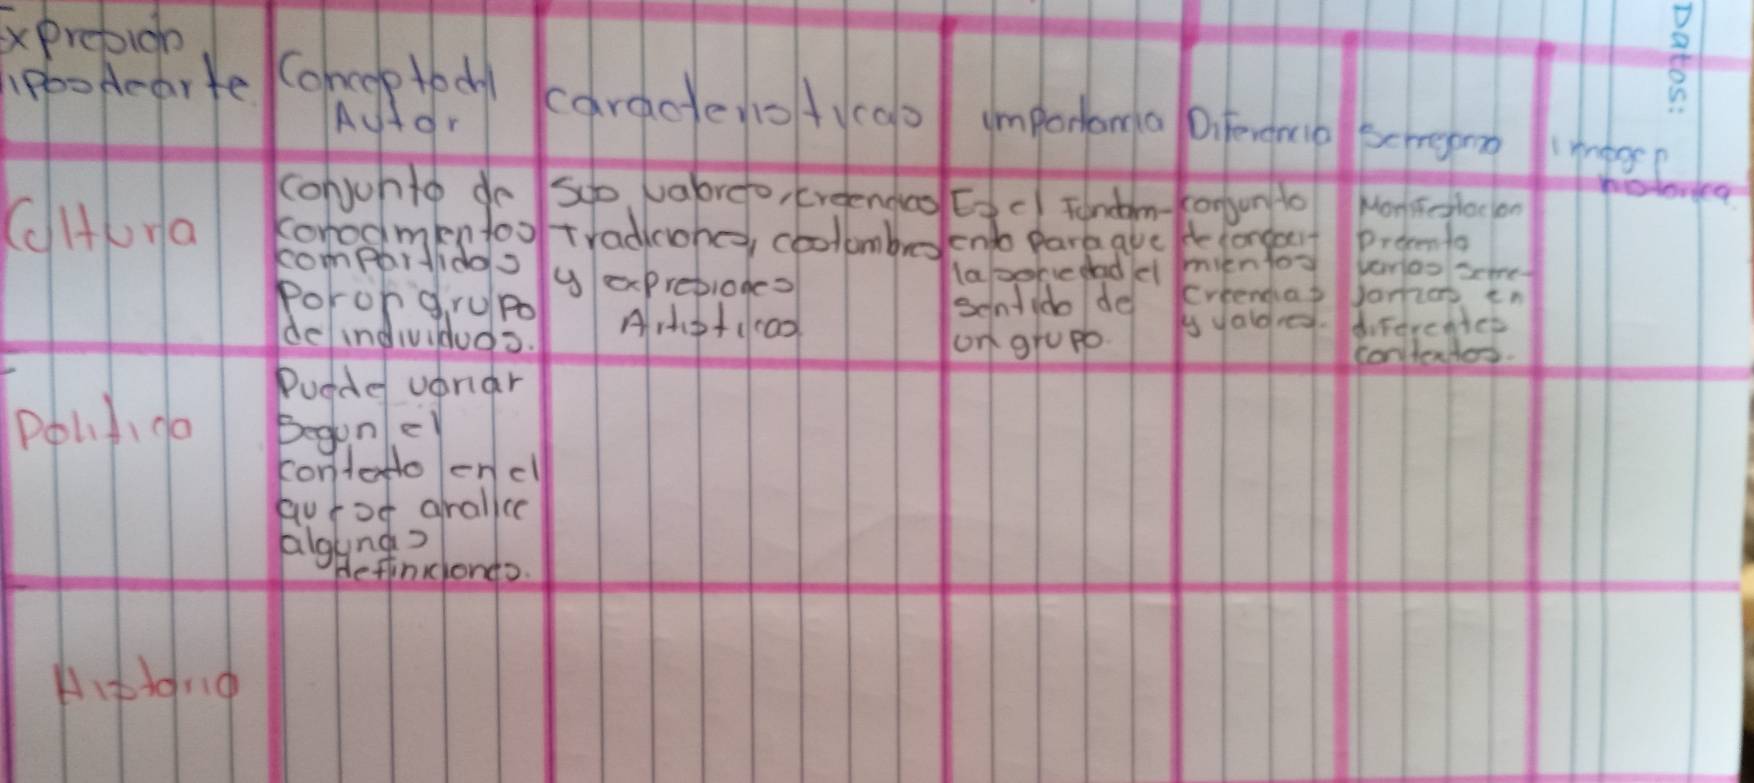 Expresion
tipos de arte
Concepto del
Autor
caracteristicas
importancia
Diferencia
Semejanza
imagen
historica
Datos:
Cultura
conjunto de
conocimientos
compartidos
por un grupo
de individuos.
Sus valores, creencias
Tradiciones, costumbres
y expresiones
Artisticas
Es el Fundam-
ento para que
la sociedad el
sentido de
un grupo.
conjunto
de conoci-
mientos
creencias
y valores.
Manifestacion
Presenta
varias seme-
janzas en
diferentes
contextos.
Politica
Puede variar
segun el
contexto en el
que se analice
algunas
definiciones.
Historia